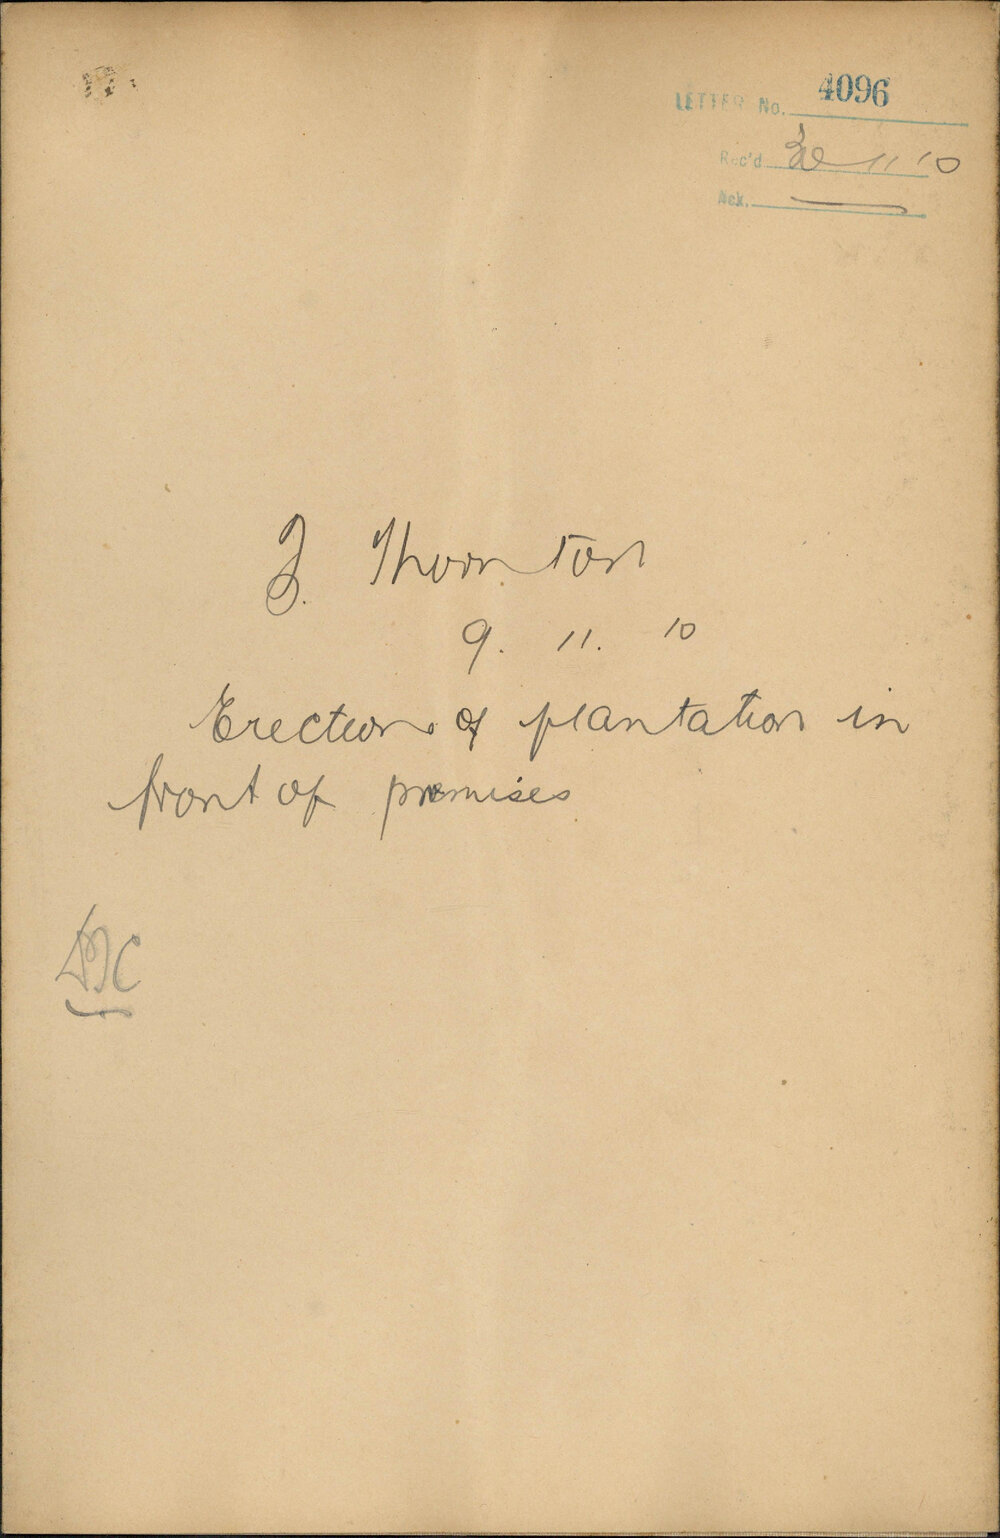 LETTER No. 4096
Rec'd 30 11 10
Ack.
Thornton
9. 11. 10
Erection of plantation in
front of premises